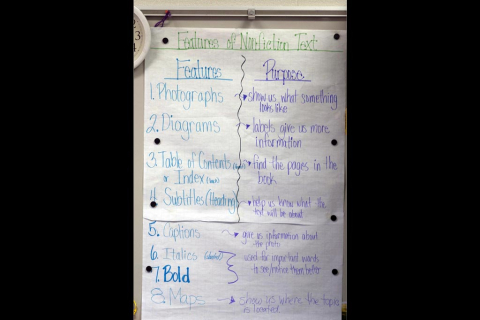 Features of Nonfiction Text
Features
Purpose
1. Photographs
show us what something
looks like
2. Diagrams
labels give us more
information
3. Table of Contents
or Index
find the pages in the
book
4. Subtitles (Heading)
help us know what the
text will be about
5. Captions
give us information about
the photo
6. Italics
7. Bold
used for important words
to see/notice them better
8. Maps
show us where the topic
is located